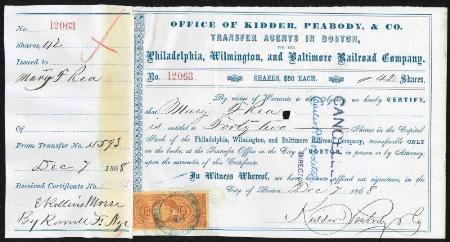 No. 12063
Shares, 42
Issued to
Mary F Rea
From Transfer No. 4593
Dec 7 1868
Received Certificate
E Rollins Morse
OFFICE OF KIDDER, PEABODY, & CO.
TRANSFER AGENTS IN BOSTON,
FOR THE
Philadelphia, Wilmington, and Baltimore Railroad Company.
No. 12063 SHARES, $50 EACH. 42 Shares.
By virtue of Warrants to us we hereby CERTIFY,
that Mary F Rea
is entitled to Forty two Shares in the Capital
Stock of the Philadelphia, Wilmington, and Baltimore Railroad Company, transferable ONLY
on the books, at the Transfer Office in the City of BOSTON in person or by Attorney
upon the surrender of this Certificate.
In Witness Whereof, we have hereto affixed our official signature, in the
City of Boston, Dec 7 1868
Kidder Peabody & Co